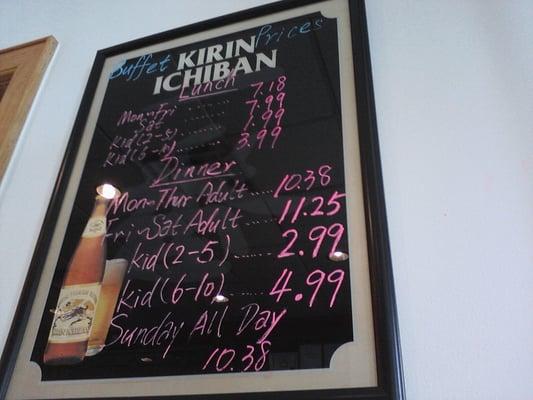 Buffet Prices
KIRIN
ICHIBAN
Lunch
Mon-Fri ........ 7.18
Sat ........ 7.99
Kid(2-5) ........ 1.99
Kid(6-10) ........ 3.99
Dinner
Mon-Thur Adult .... 10.38
Fri-Sat Adult .... 11.25
kid(2-5) ...... 2.99
kid(6-10) .... 4.99
Sunday All Day
10.38